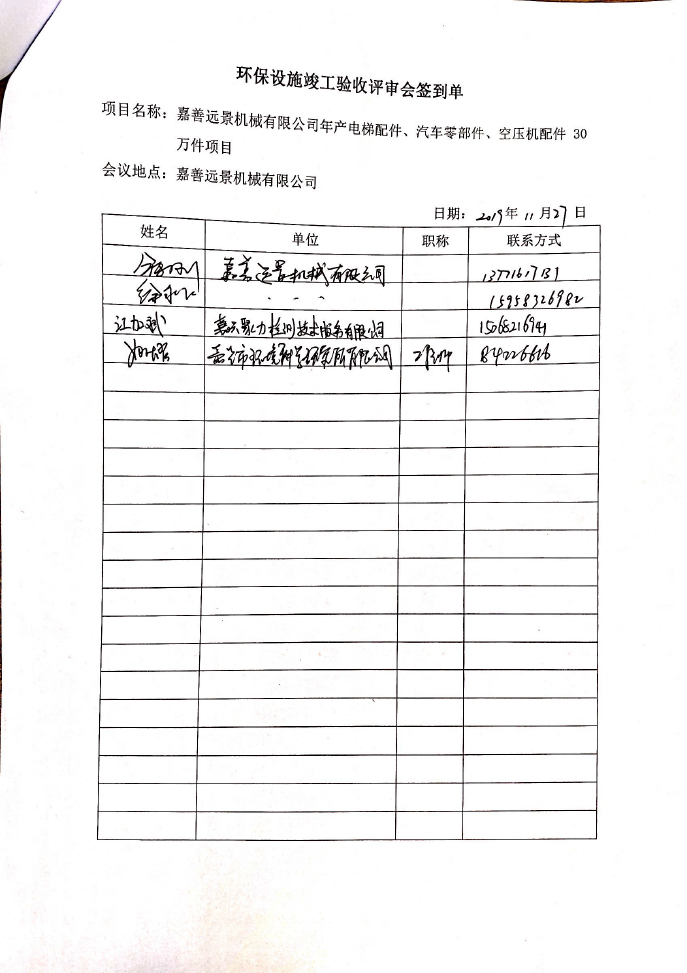 环保设施竣工验收评审会签到单
项目名称：嘉善远景机械有限公司年产电梯配件、汽车零部件、空压机配件 30
万件项目
会议地点：嘉善远景机械有限公司
日期：2019年 11 月27 日
姓名 单位 职称 联系方式
嘉善远景机械有限公司
15958326982
嘉兴聚力检测技术服务有限公司 15068216941
嘉兴市环境科学研究所有限公司 84226616